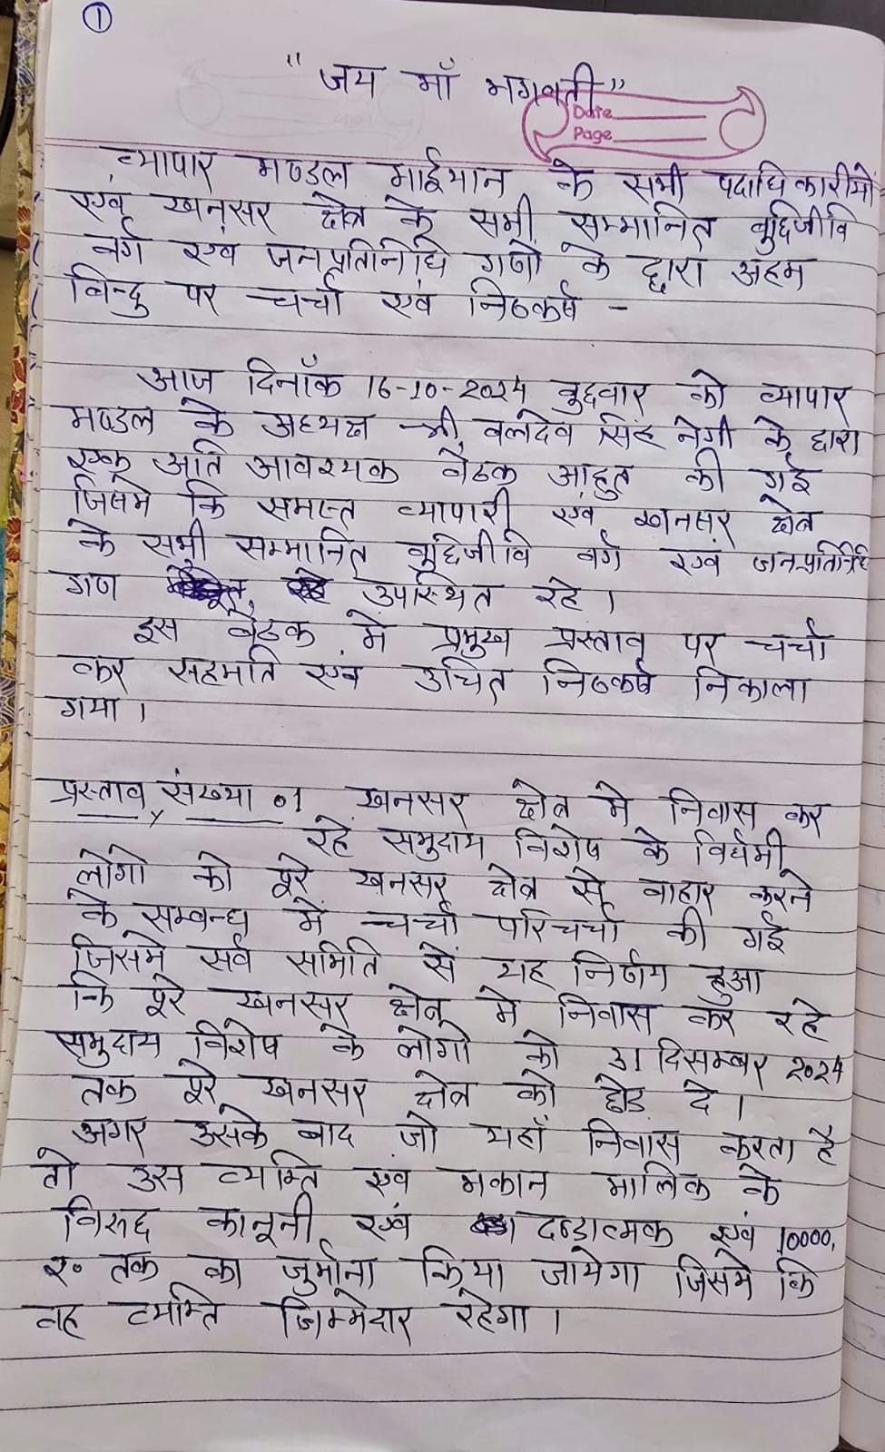 ①
"जय माँ भगवती"
Date
Page
व्यापार मण्डल माईथान के सभी पदाधिकारीयों
एवं खनसर क्षेत्र के सभी सम्मानित बुद्दिजीवि
वर्ग एवं जनप्रतिनिधि गणों के द्वारा अहम
बिन्दु पर चर्चा एवं निष्कर्ष -
आज दिनाँक 16-10-2024 बुद्दवार को व्यापार
मण्डल के अध्यक्ष श्री वलदेव सिंह नेगी के द्वारा
एक अति आवश्यक बैठक आहुत की गई
जिसमे कि समस्त व्यापारी एवं खनसर क्षेत्र
के सभी सम्मानित बुद्दिजीवि वर्ग एवं जनप्रतिनिधि
गण उपस्थित रहे।
इस बैठक में प्रमुख प्रस्ताव पर चर्चा
कर सहमति एवं उचित निष्कर्ष निकाला
गया।
प्रस्ताव संख्या 01 खनसर क्षेत्र मे निवास कर
रहे समुदाय विशेष के विर्धमी
लोगो को पूरे खनसर क्षेत्र से बाहार करने
के सम्वन्ध में चर्चा परिचर्चा की गई
जिसमे सर्व समिति से यह निर्णय हुआ
कि पूरे खनसर क्षेत्र मे निवास कर रहे
समुदाय विशेष के लोगो को 31 दिसम्बर 2024
तक पूरे खनसर क्षेत्र को छोड दे।
अगर उसके बाद जो यहाँ निवास करता है
तो उस व्यक्ति एवं मकान मालिक के
विरुद्द कानूनी एवं दण्डात्मक एवं 10000,
रु० तक का जुर्माना किया जायेगा जिसमे कि
वह व्यक्ति जिम्मेदार रहेगा।